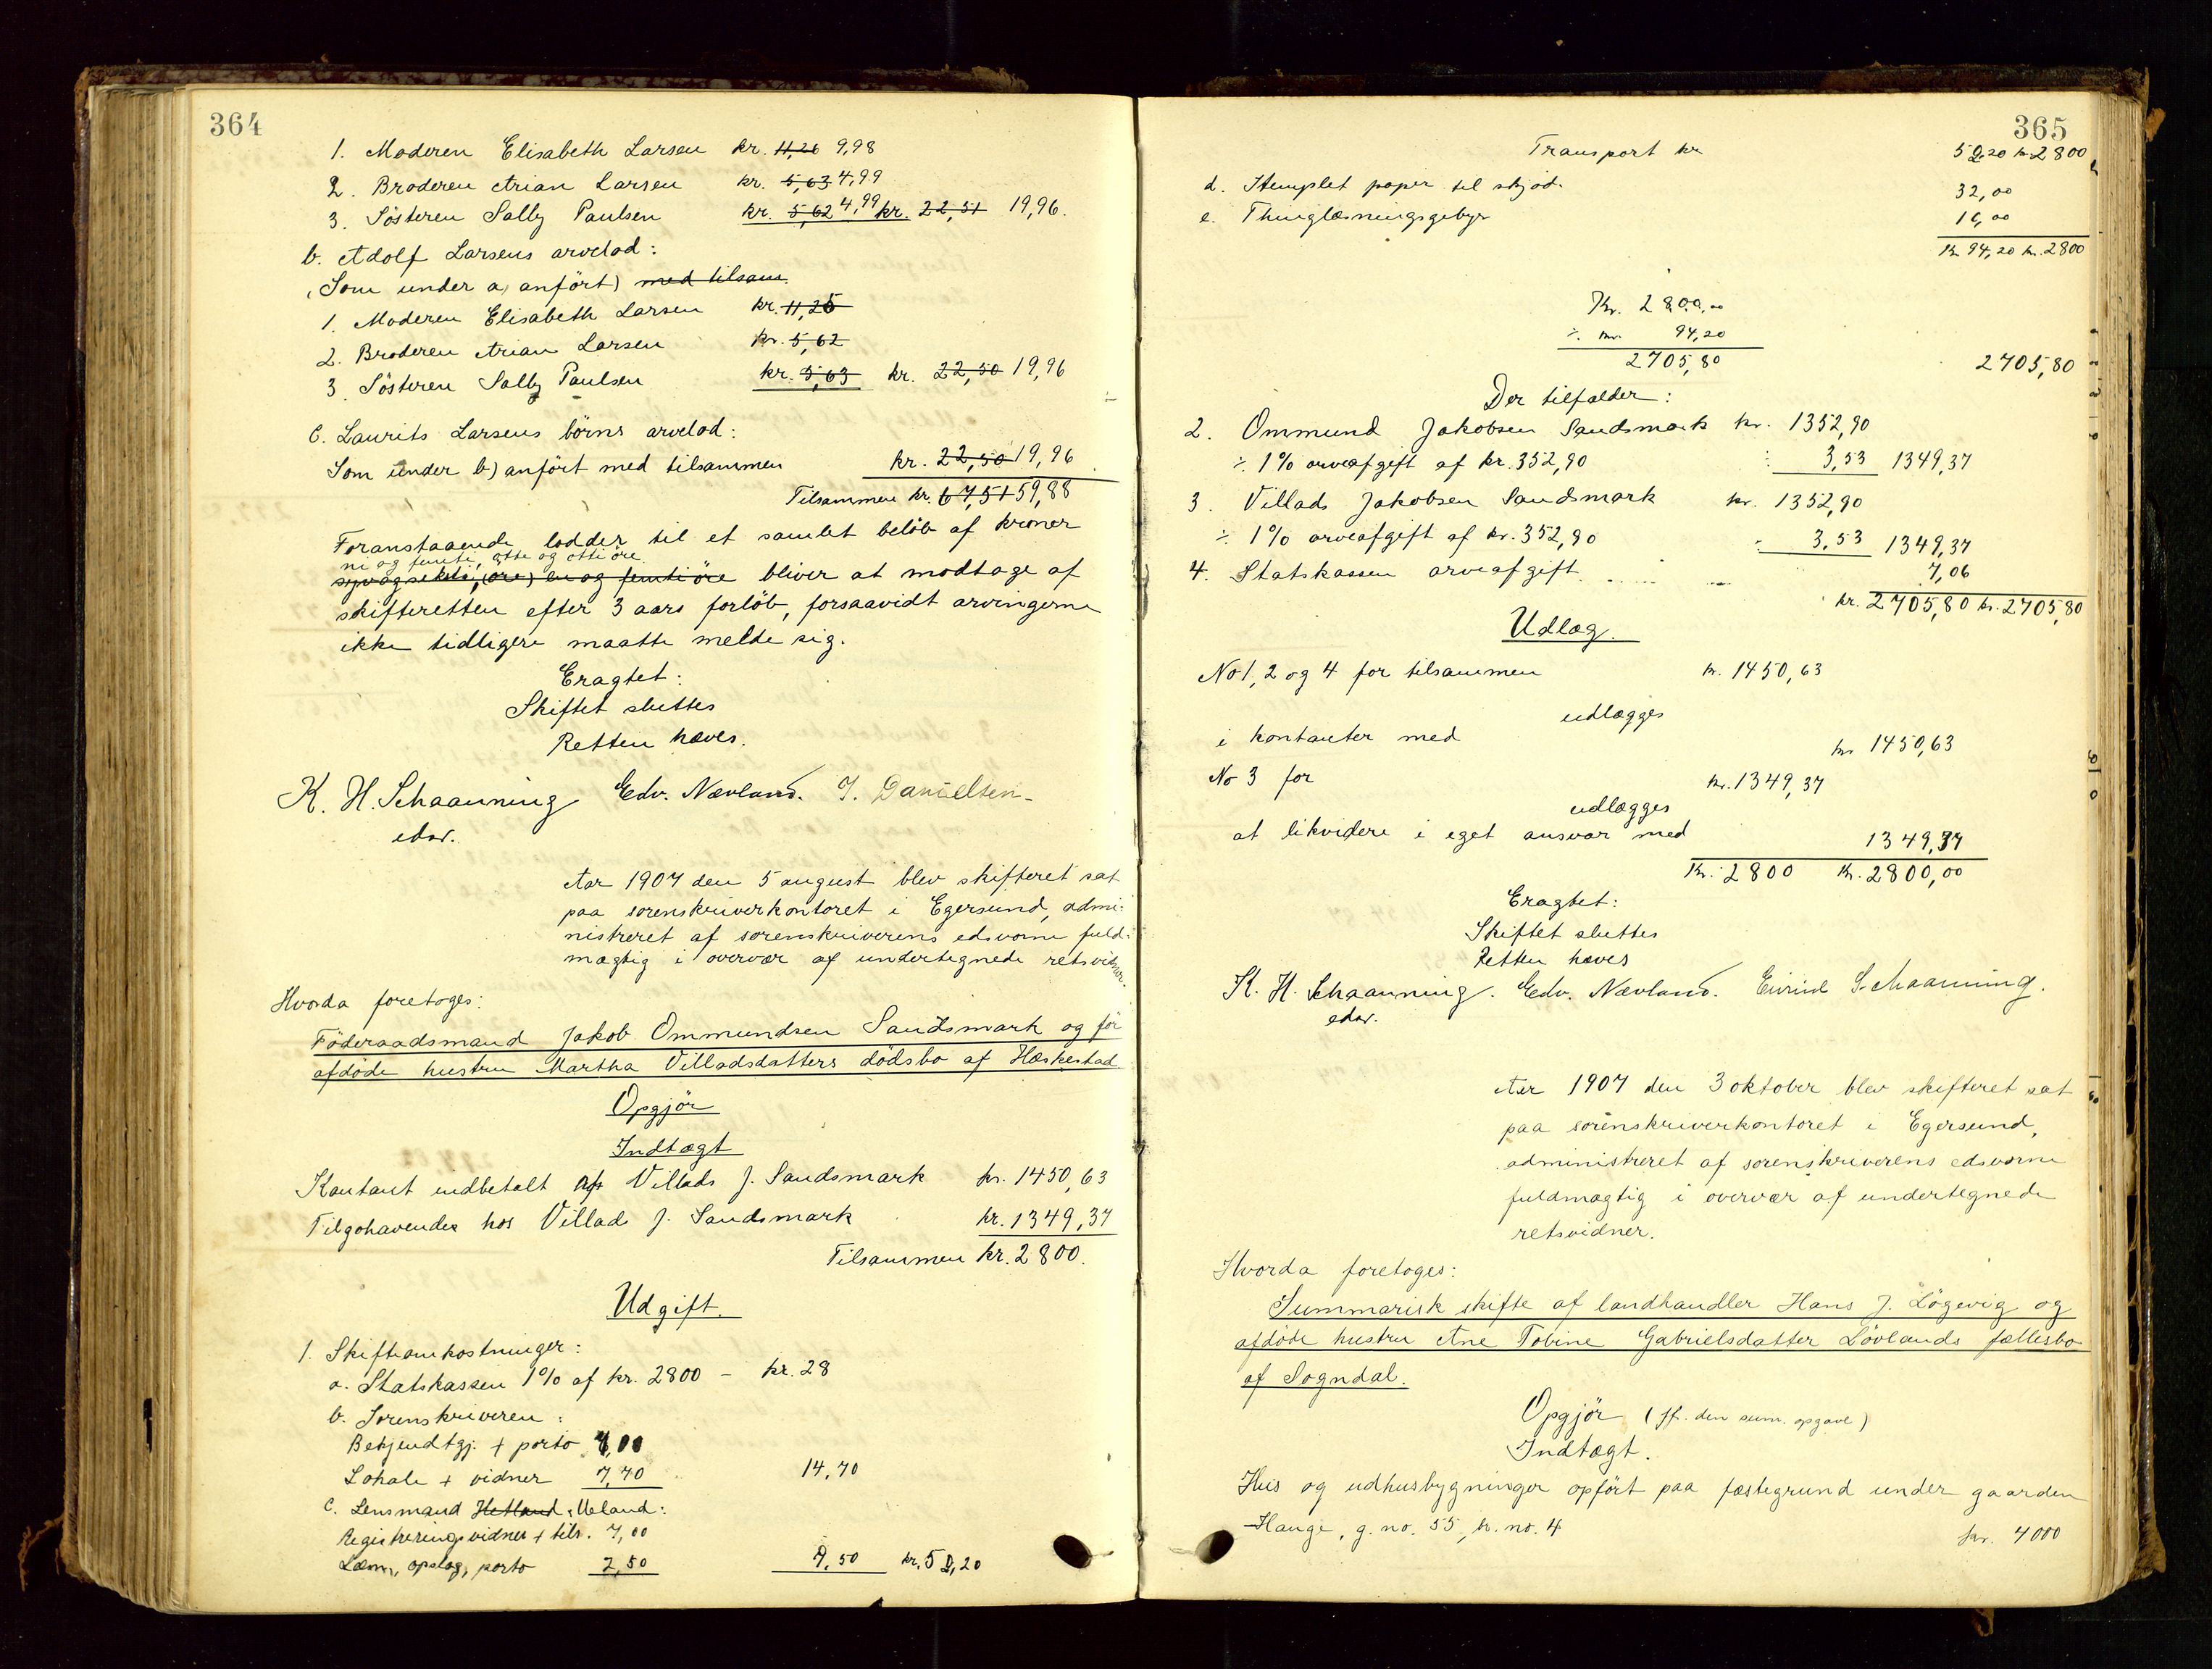 364
1. Moderen Elisabeth Larsen kr. 11,26 9,98
2. Broderen Arian Larsen kr. 5,63 4,99
3. Sösteren Sally Paulsen kr. 5,62 4,99 kr. 22,51 19,96.
b. Adolf Larsens arvelod:
(Som under a, anfört) med tilsam
1. Moderen Elisabeth Larsen kr. 11,25
2. Broderen Arian Larsen kr. 5,62
3. Sösteren Sally Paulsen kr. 5,63 kr. 22,50 19,96
C. Laurits Larsens börns arvelod:
Som under b) anfört med tilsammen kr. 22,50 19,96
Tilsammen kr. 67,51 59,88
Foranstaaende lodder til et samlet belöb af kroner
ni og femti, otte og otti öre
syv og seksti, (öre) en og femti öre bliver at modtage af
skifteretten efter 3 aars forlöb, forsaavidt arvingerne
ikke tidligere maatte melde sig.
Eragtet:
Skiftet sluttes
Retten hæves.
K. H. Schaanning Edv. Nævland. J. Danielsen
edsv.
Aar 1907 den 5 august blev skifteret sat
paa sorenskriverkontoret i Egersund, admi-
nistreret af sorenskriverens edsvorne fuld-
mægtig i overvær af undertegnede retsvidner.
Hvorda foretoges:
Föderaadsmand Jakob Ommundsen Sandsmark og för
afdöde hustru Martha Villadsdatters dödsbo af Heskestad
Opgjör
Indtægt
Kontant indbetalt af Villads J. Sandsmark kr. 1450,63
Tilgohavende hos Villads J. Sandsmark kr. 1349,37
Tilsammen kr. 2800.
Udgift.
1. Skifteomkostninger:
a. Statskassen 1% af kr. 2800 - kr. 28
b. Sorenskriveren:
Bekjendtgj. + porto 7,00
Lokale + vidner 7,70 14,70
C. Lensmand Hetland Ueland:
Registreringsvidner + tils. 7,00
Læm, opslag, porto 2,50 9,50 kr. 52,20
365
Transport kr 52,20 kr. 2800
d. Stemplet papir til skjöd. 32,00
e. Thinglæsningsgebyr 10,00
kr. 94,20 kr. 2800
Kr. 2800,00
÷ kr. 94,20
2705,80 2705,80
Der tilfalder:
2. Ommund Jakobsen Sandsmark kr. 1352,90
÷ 1% arveafgift af kr. 352,90 ÷ 3,53 1349,37
3. Villads Jakobsen Sandsmark kr. 1352,90
÷ 1% arveafgift af kr. 352,90 ÷ 3,53 1349,37
4. Statskassen arveafgift 7,06
kr. 2705,80 kr. 2705,80
Udlæg.
No 1, 2 og 4 for tilsammen kr. 1450,63
udlægges
i kontanter med kr 1450,63
No 3 for kr. 1349,37
udlægges
at likvidere i eget ansvar med 1349,37
Kr. 2800 Kr. 2800,00
Eragtet:
Skiftet sluttes
Retten hæves
K. H. Schaanning. Edv. Nævland. Eivind Schaanning.
edsv.
Aar 1907 den 3 oktober blev skifteret sat
paa sorenskriverkontoret i Egersund,
administreret af sorenskriverens edsvorne
fuldmægtig i overvær af undertegnede
retsvidner.
Hvorda foretoges:
Summarisk skifte af landhandler Hans J. Lögevig og
afdöde hustru Ane Tobine Gabrielsdatter Lövlands fællesbo
af Sogndal.
Opgjör (jf. den sum. opgave)
Indtægt.
Hus og udhusbygninger opfört paa fæstegrund under gaarden
Hauge, g. no. 55, br. no. 4 kr. 4000